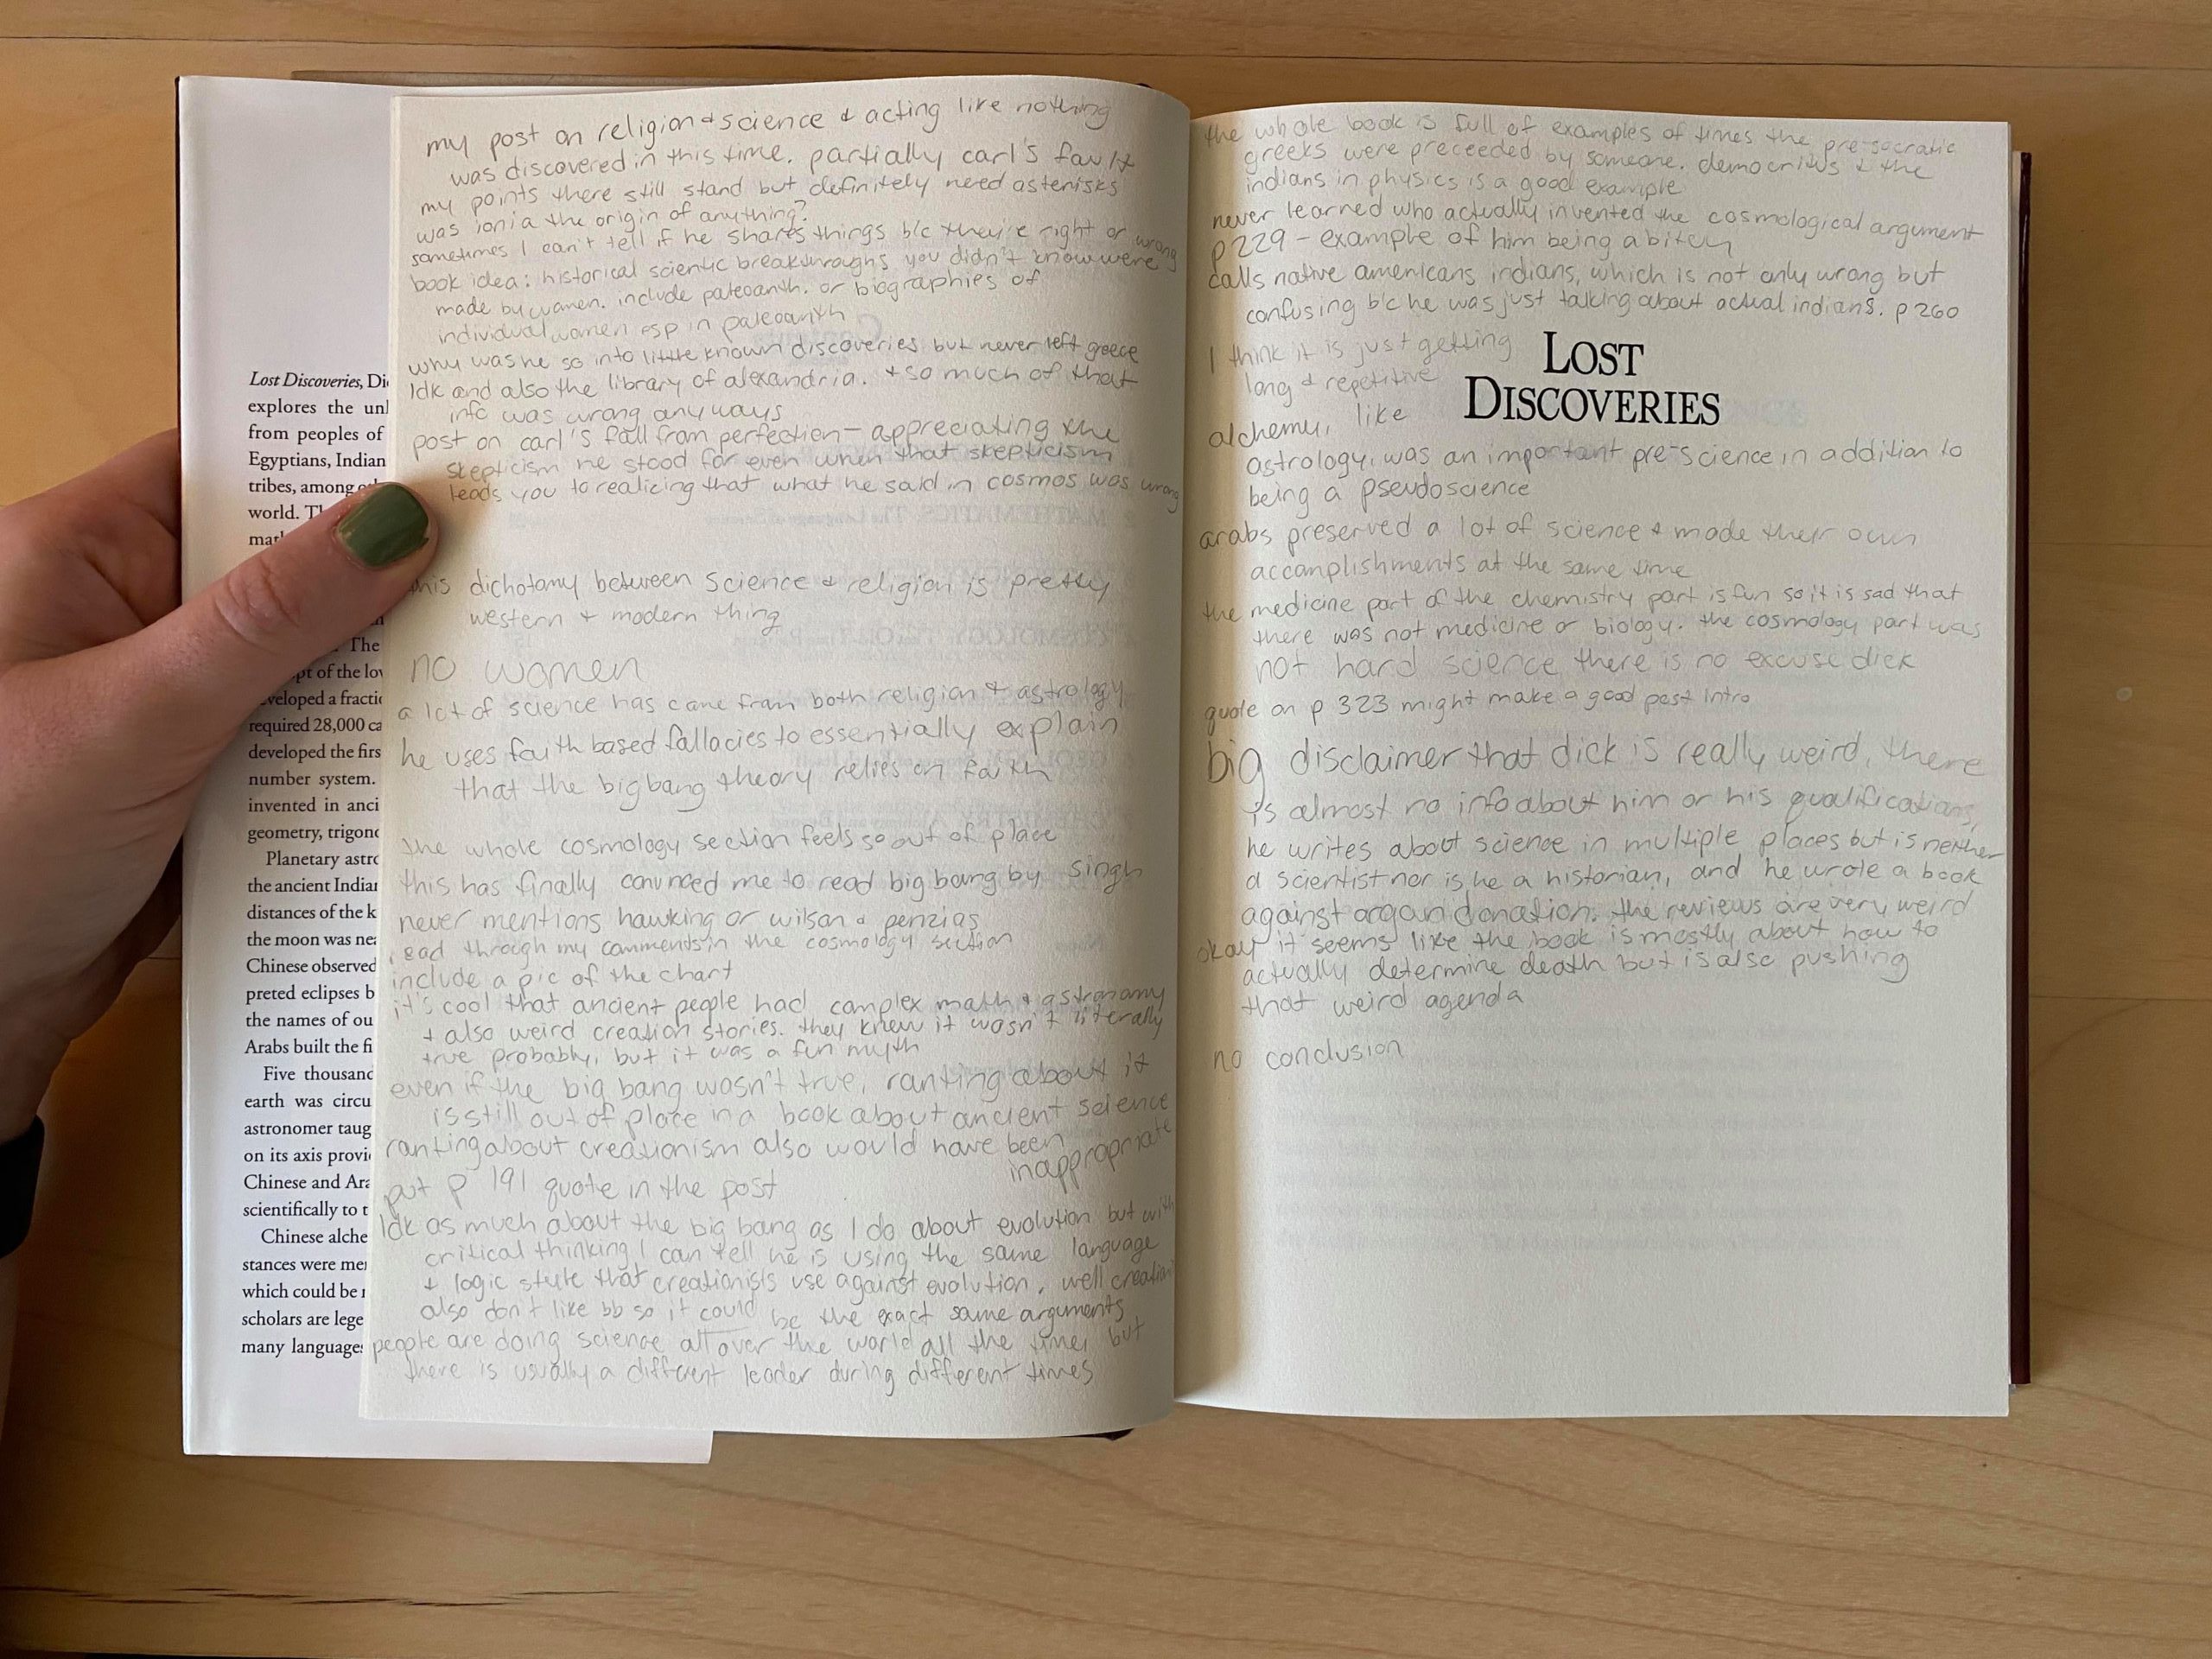 Lost Discoveries, Di
explores the unl
from peoples of
Egyptians, Indian
tribes, among
world. Th
mat
The
pt of the lov
veloped a fractic
required 28,000 ca
developed the firs
number system.
invented in anci
geometry, trigono
Planetary astro
the ancient Indian
distances of the k
the moon was nea
Chinese observed
preted eclipses b
the names of ou
Arabs built the fi
Five thousand
earth was circu
astronomer taug
on its axis provi
Chinese and Ara
scientifically to t
Chinese alche
stances were mer
which could be r
scholars are lege
many languages
my post on religion & science & acting like nothing
was discovered in this time. partially carl's fault
my points there still stand but definitely need asterisks
was ionia the origin of anything?
sometimes I can't tell if he shares things b/c they're right or wrong
book idea: historical scientic breakthroughs you didn't know were
made by women. include paleoanth. or biographies of
individual women esp in paleoanth
why was he so into little known discoveries but never left greece
Idk and also the library of alexandria. + so much of that
info was wrong anyways
post on carl's fall from perfection - appreciating the
skepticism he stood for even when that skepticism
leads you to realizing that what he said in cosmos was wrong
this dichotomy between science & religion is pretty
western & modern thing
no women
a lot of science has come from both religion & astrology
he uses faith based fallacies to essentially explain
that the big bang theory relies on faith
the whole cosmology section feels so out of place
this has finally convinced me to read big bang by singh
never mentions hawking or wilson & penzias
read through my comments in the cosmology section
include a pic of the chart
it's cool that ancient people had complex math & astronomy
+ also weird creation stories. they knew it wasn't literally
true probably, but it was a fun myth
even if the big bang wasn't true, ranting about it
is still out of place in a book about ancient science
ranting about creationism also would have been
inappropriate
put p 191 quote in the post
Idk as much about the big bang as I do about evolution but with
critical thinking I can tell he is using the same language
+ logic style that creationists use against evolution. well
also don't like bb so it could be the exact same arguments
people are doing science all over the world all the time, but
there is usually a different leader during different times
the whole book is full of examples of times the pre-socratic
greeks were preceeded by someone. democritus & the
indians in physics is a good example
never learned who actually invented the cosmological argument
p 229 - example of him being a bitch
calls native americans indians, which is not only wrong but
confusing b/c he was just talking about actual indians. p 260
I think it is just getting
long & repetitive
LOST
DISCOVERIES
alchemy, like
astrology, was an important pre-science in addition to
being a pseudoscience
arabs preserved a lot of science & made their own
accomplishments at the same time
the medicine part of the chemistry part is fun so it is sad that
there was not medicine or biology. the cosmology part was
not hard science there is no excuse dick
quote on p 323 might make a good post intro
big disclaimer that dick is really weird, there
is almost no info about him or his qualifications,
he writes about science in multiple places but is neither
a scientist nor is he a historian, and he wrote a book
against organ donation. the reviews are very weird
okay it seems like the book is mostly about how to
actually determine death but is also pushing
that weird agenda
no conclusion